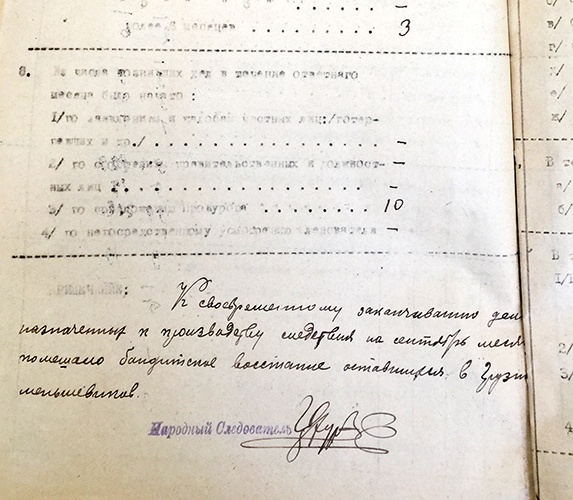 более 3 месяцев . . . . . 3
8. Из числа возникших дел в течение отчетнаго
месяца было начато :
1/ по заявлениям и жалобам частных лиц:/потер-
певших и др./ . . . . . . . . . . . . —
2/ по правительственных и должност- —
ных лиц . . . . . . . . . . . . . —
3/ по прокурора . . . . . . . . . 10
4/ по непосредственному усмотрению следователя —
ПРИМЕЧАНИЕ:
К своевременному заканчиванию дел
назначенных к производству следствия на сентябрь меся
помешало бандитское восстание оставшихся в Грузи
меньшевиков.
Народный Следователь
В те
а/
б/
В т
I/
2/
3/
4